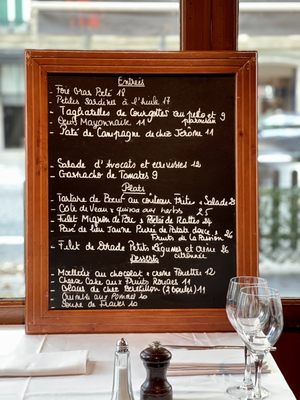 Entrées
- Foie Gras Poêlé 18
- Petites Sardines à l'Huile 17
- Tagliatelles de Courgettes au pesto et 9
parmesan
- Oeufs Mayonnaise 11
- Pâté de Campagne de chez Jérome 11
- Salade d'Avocats et écrevisses 12
- Gaspacho de Tomates 9
Plats
- Tartare de Bœuf au couteau Frites + Salade 20
- Côte de Veau + quinoa aux herbs 25
- Filet Mignon de Porc + Ecrasé de Rattes 24
- Pavé de Lieu Jaune Purée de Patate douce + 26
Fruits de la Passion
- Filet de Dorade Petits Légumes et crème 26
citronnée
Desserts
- Moelleux au chocolat + crème Fouettée 12
- Cheese Cake aux Fruits Rouges 11
- Glaces de chez Berthillon (2 Boules) 11
- Crumble aux Pommes 10
- Soupe de Fraises 10